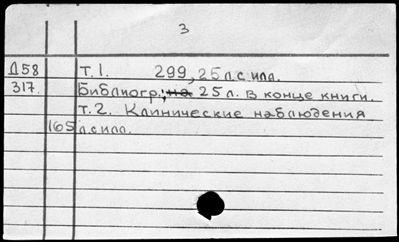 3
Д58 Т.1. 299, 25 л. с илл.
317. Библиогр.; на 25 л. в конце книги.
т.2. Клинические наблюдения
165 л. с илл.